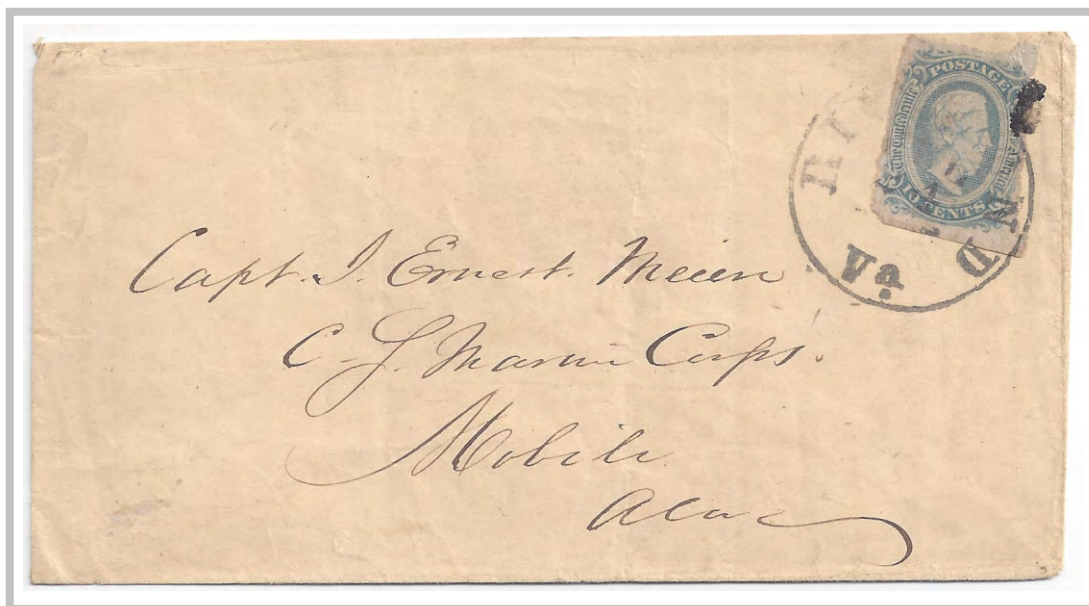 POSTAGE
The Confederate
America
10 CENTS
RI ND
12
Va.
Capt. J. Ernest. Meiere
C. S. Marine Corps.
Mobile
Ala